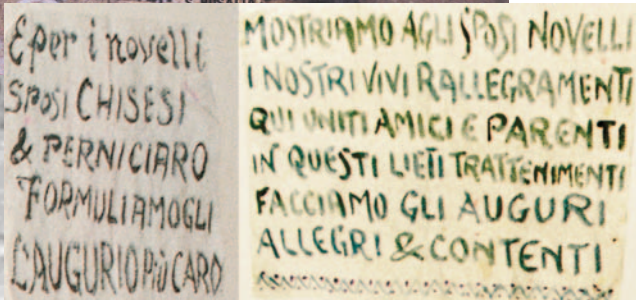 E per i novelli
Sposi CHISESI
& PERNICIARO
FORMULIAMOGLI
L'AUGURIO PIÙ CARO
MOSTRIAMO AGLI SPOSI NOVELLI
I NOSTRI VIVI RALLEGRAMENTI
QUI UNITI AMICI E PARENTI
IN QUESTI LIETI TRATTENIMENTI
FACCIAMO GLI AUGURI
ALLEGRI & CONTENTI